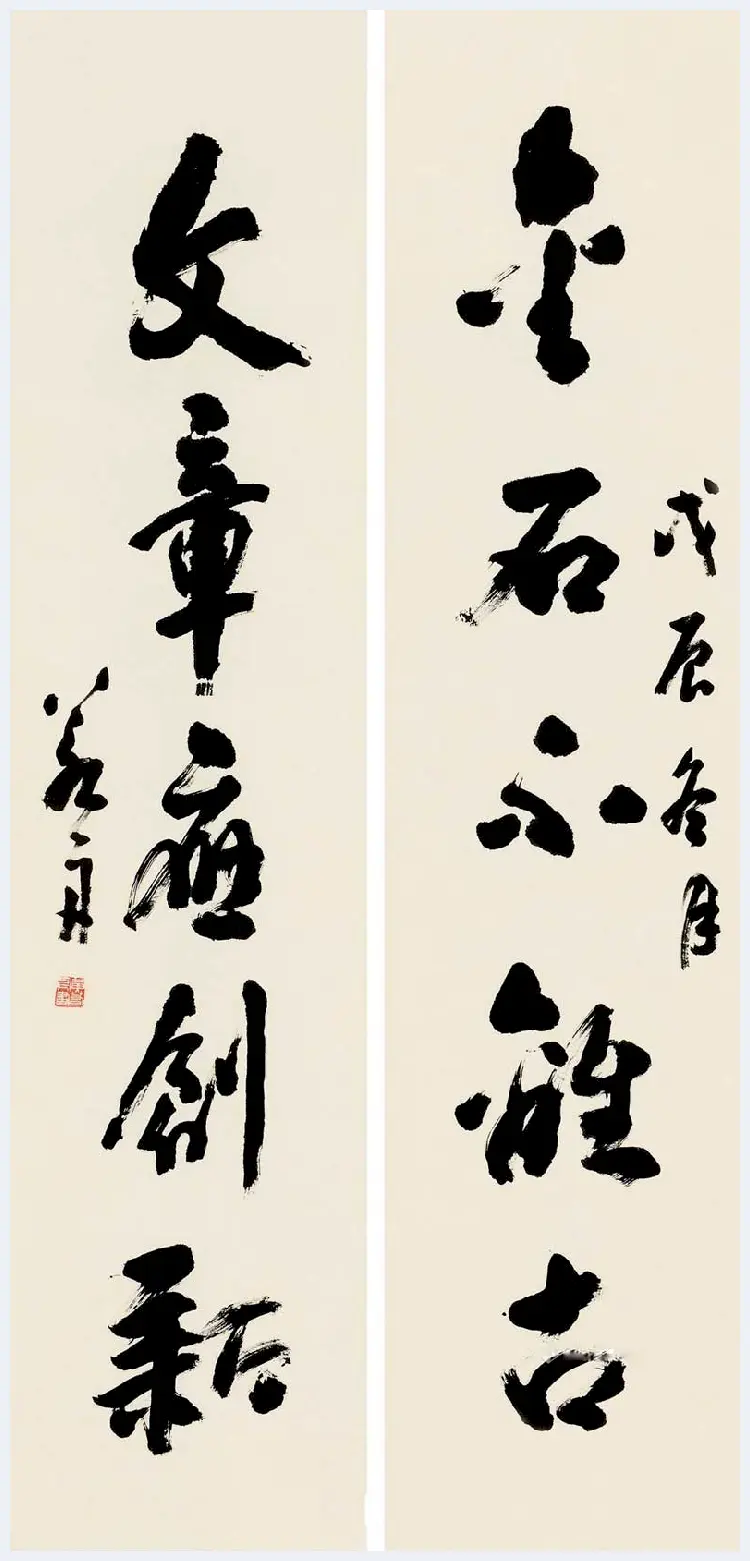 戊辰冬月
金石不離古
文章應創新
若舟